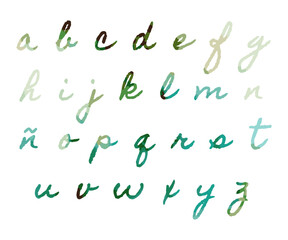 a b c d e f g
h i j k l m n
ñ o p q r s t
u v w x y z